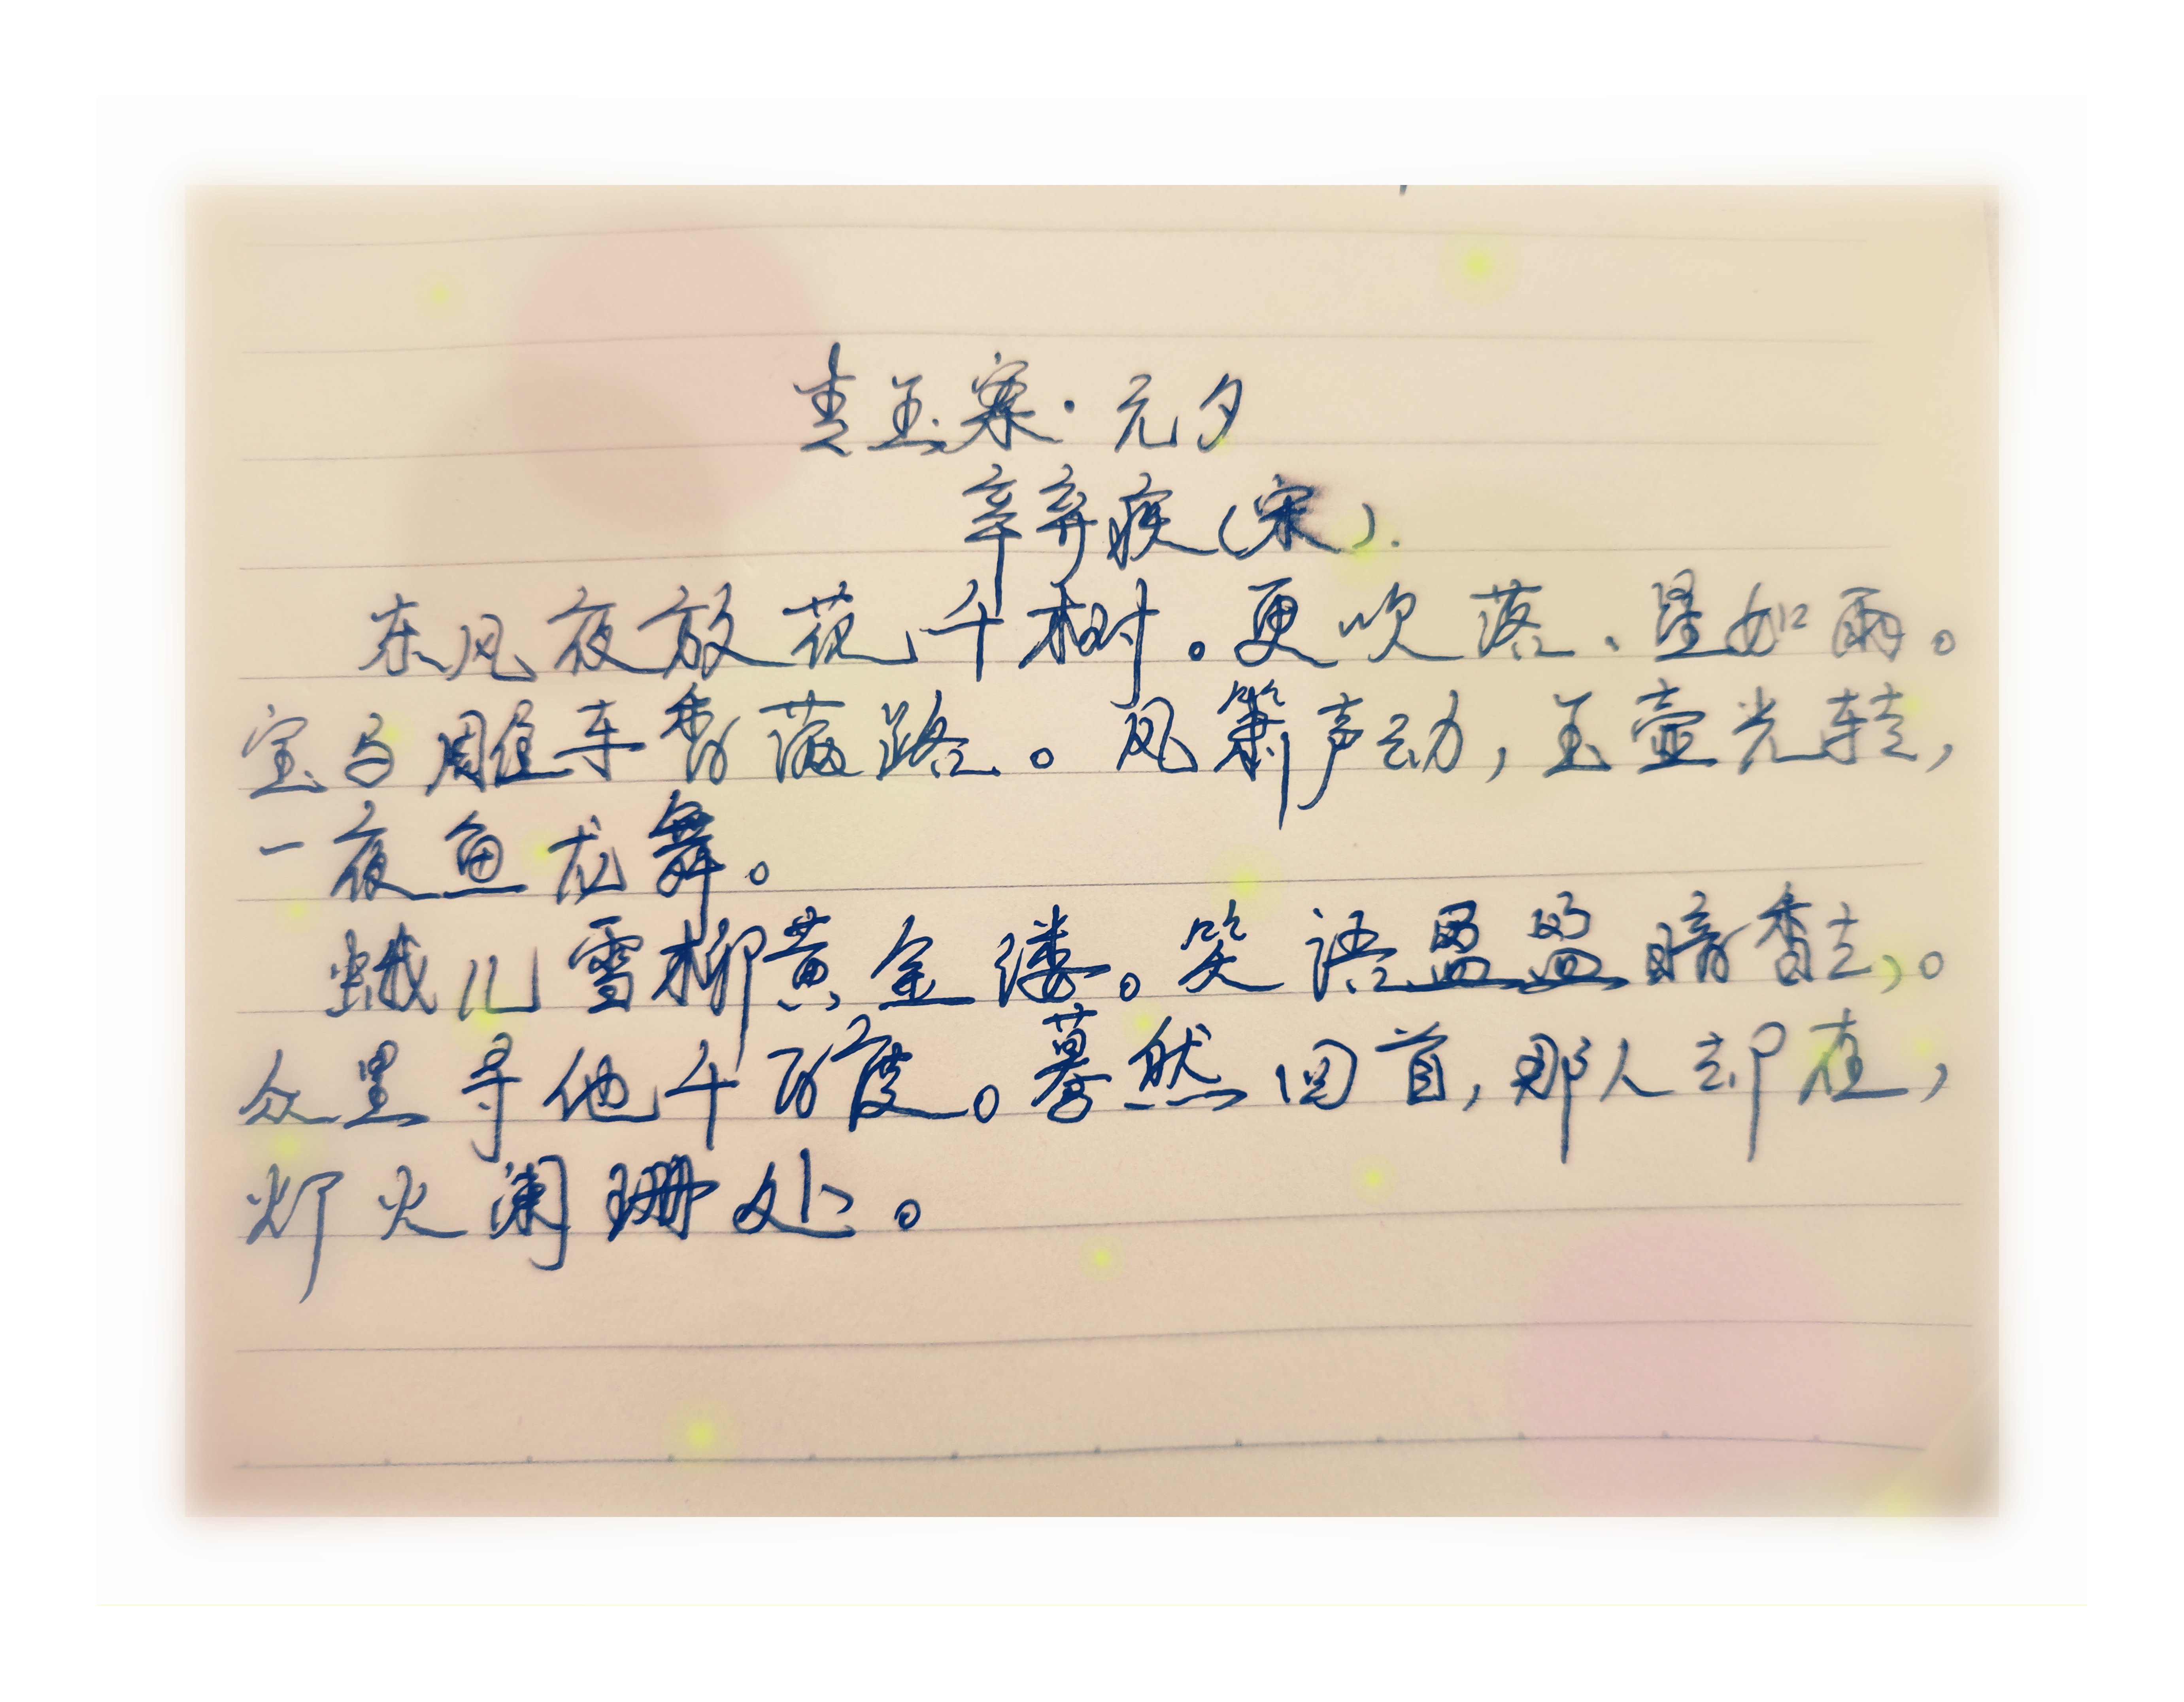 青玉案·元夕
辛弃疾(宋).
东风夜放花千树。更吹落、星如雨。
宝马雕车香满路。凤箫声动,玉壶光转,
一夜鱼龙舞。
蛾儿雪柳黄金缕。笑语盈盈暗香去,。
众里寻他千百度。蓦然回首,那人却在,
灯火阑珊处。